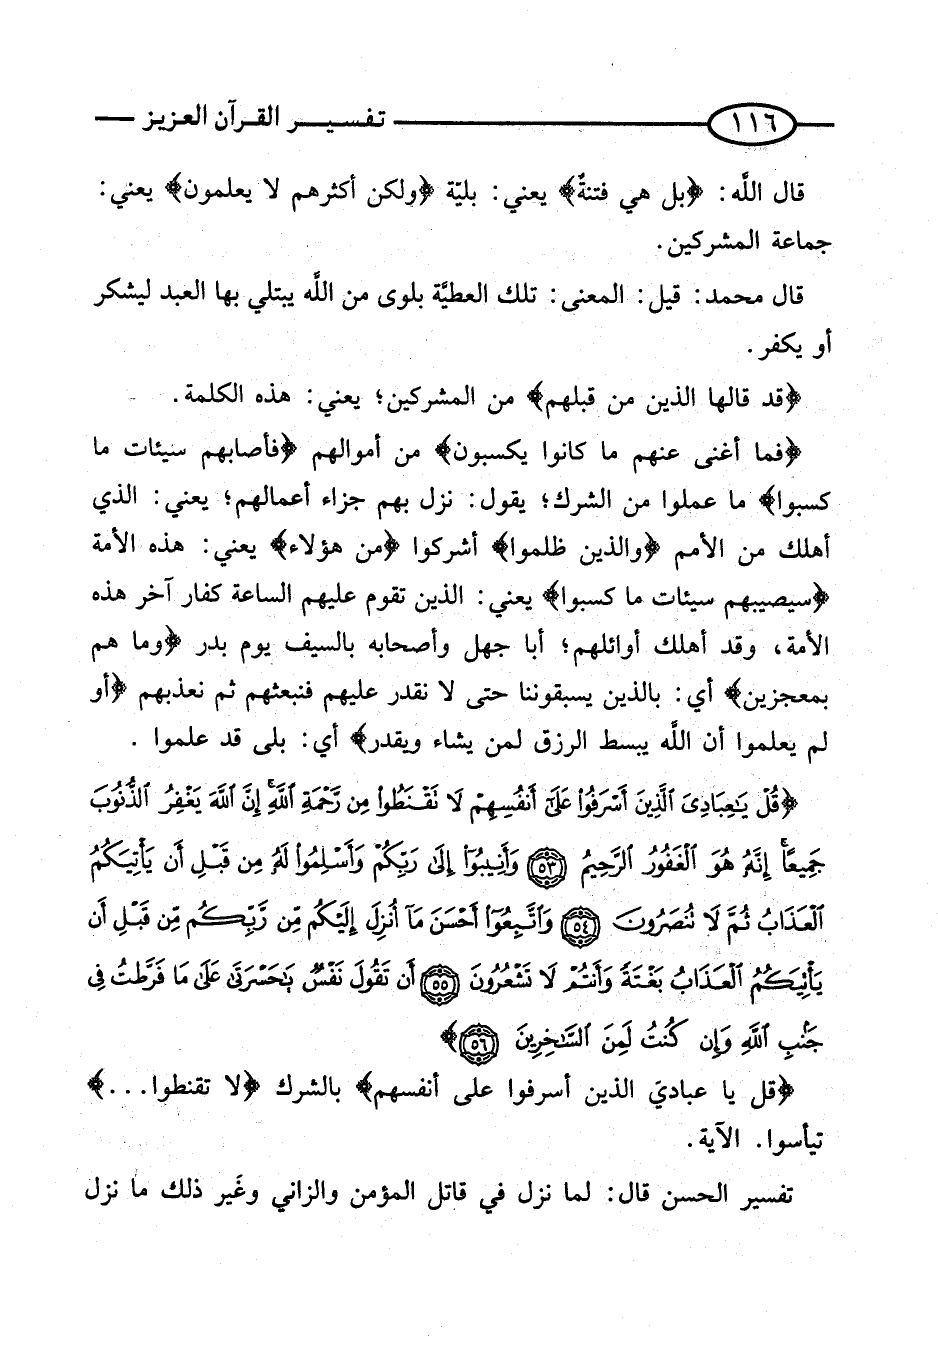 ١١٦ تفسير القرآن العزيز
قال اللَّه: ﴿بل هي فتنةٌ﴾ يعني: بليّة ﴿ولكن أكثرهم لا يعلمون﴾ يعني:
جماعة المشركين.
قال محمد: قيل: المعنى: تلك العطيَّة بلوى من اللَّه يبتلي بها العبد ليشكر
أو يكفر.
﴿قد قالها الذين من قبلهم﴾ من المشركين؛ يعني: هذه الكلمة.
﴿فما أغنى عنهم ما كانوا يكسبون﴾ من أموالهم ﴿فأصابهم سيئات ما
كسبوا﴾ ما عملوا من الشرك؛ يقول: نزل بهم جزاء أعمالهم؛ يعني: الذي
أهلك من الأمم ﴿والذين ظلموا﴾ أشركوا ﴿من هؤلاء﴾ يعني: هذه الأمة
﴿سيصيبهم سيئات ما كسبوا﴾ يعني: الذين تقوم عليهم الساعة كفار آخر هذه
الأمة، وقد أهلك أوائلهم؛ أبا جهل وأصحابه بالسيف يوم بدر ﴿وما هم
بمعجزين﴾ أي: بالذين يسبقوننا حتى لا نقدر عليهم فنبعثهم ثم نعذبهم ﴿أو
لم يعلموا أن اللَّه يبسط الرزق لمن يشاء ويقدر﴾ أي: بلى قد علموا .
﴿قُلْ يَٰعِبَادِىَ ٱلَّذِينَ أَسْرَفُوا۟ عَلَىٰٓ أَنفُسِهِمْ لَا تَقْنَطُوا۟ مِن رَّحْمَةِ ٱللَّهِ ۚ إِنَّ ٱللَّهَ يَغْفِرُ ٱلذُّنُوبَ
جَمِيعًا ۚ إِنَّهُۥ هُوَ ٱلْغَفُورُ ٱلرَّحِيمُ ٥٣ وَأَنِيبُوٓا۟ إِلَىٰ رَبِّكُمْ وَأَسْلِمُوا۟ لَهُۥ مِن قَبْلِ أَن يَأْتِيَكُمُ
ٱلْعَذَابُ ثُمَّ لَا تُنصَرُونَ ٥٤ وَٱتَّبِعُوٓا۟ أَحْسَنَ مَآ أُنزِلَ إِلَيْكُم مِّن رَّبِّكُم مِّن قَبْلِ أَن
يَأْتِيَكُمُ ٱلْعَذَابُ بَغْتَةً وَأَنتُمْ لَا تَشْعُرُونَ ٥٥ أَن تَقُولَ نَفْسٌ يَٰحَسْرَتَىٰ عَلَىٰ مَا فَرَّطتُ فِى
جَنۢبِ ٱللَّهِ وَإِن كُنتُ لَمِنَ ٱلسَّٰخِرِينَ ٥٦﴾
﴿قل يا عباديَ الذين أسرفوا على أنفسهم﴾ بالشرك ﴿لا تقنطوا...﴾
تيأسوا. الآية.
تفسير الحسن قال: لما نزل في قاتل المؤمن والزاني وغَير ذلك ما نزل